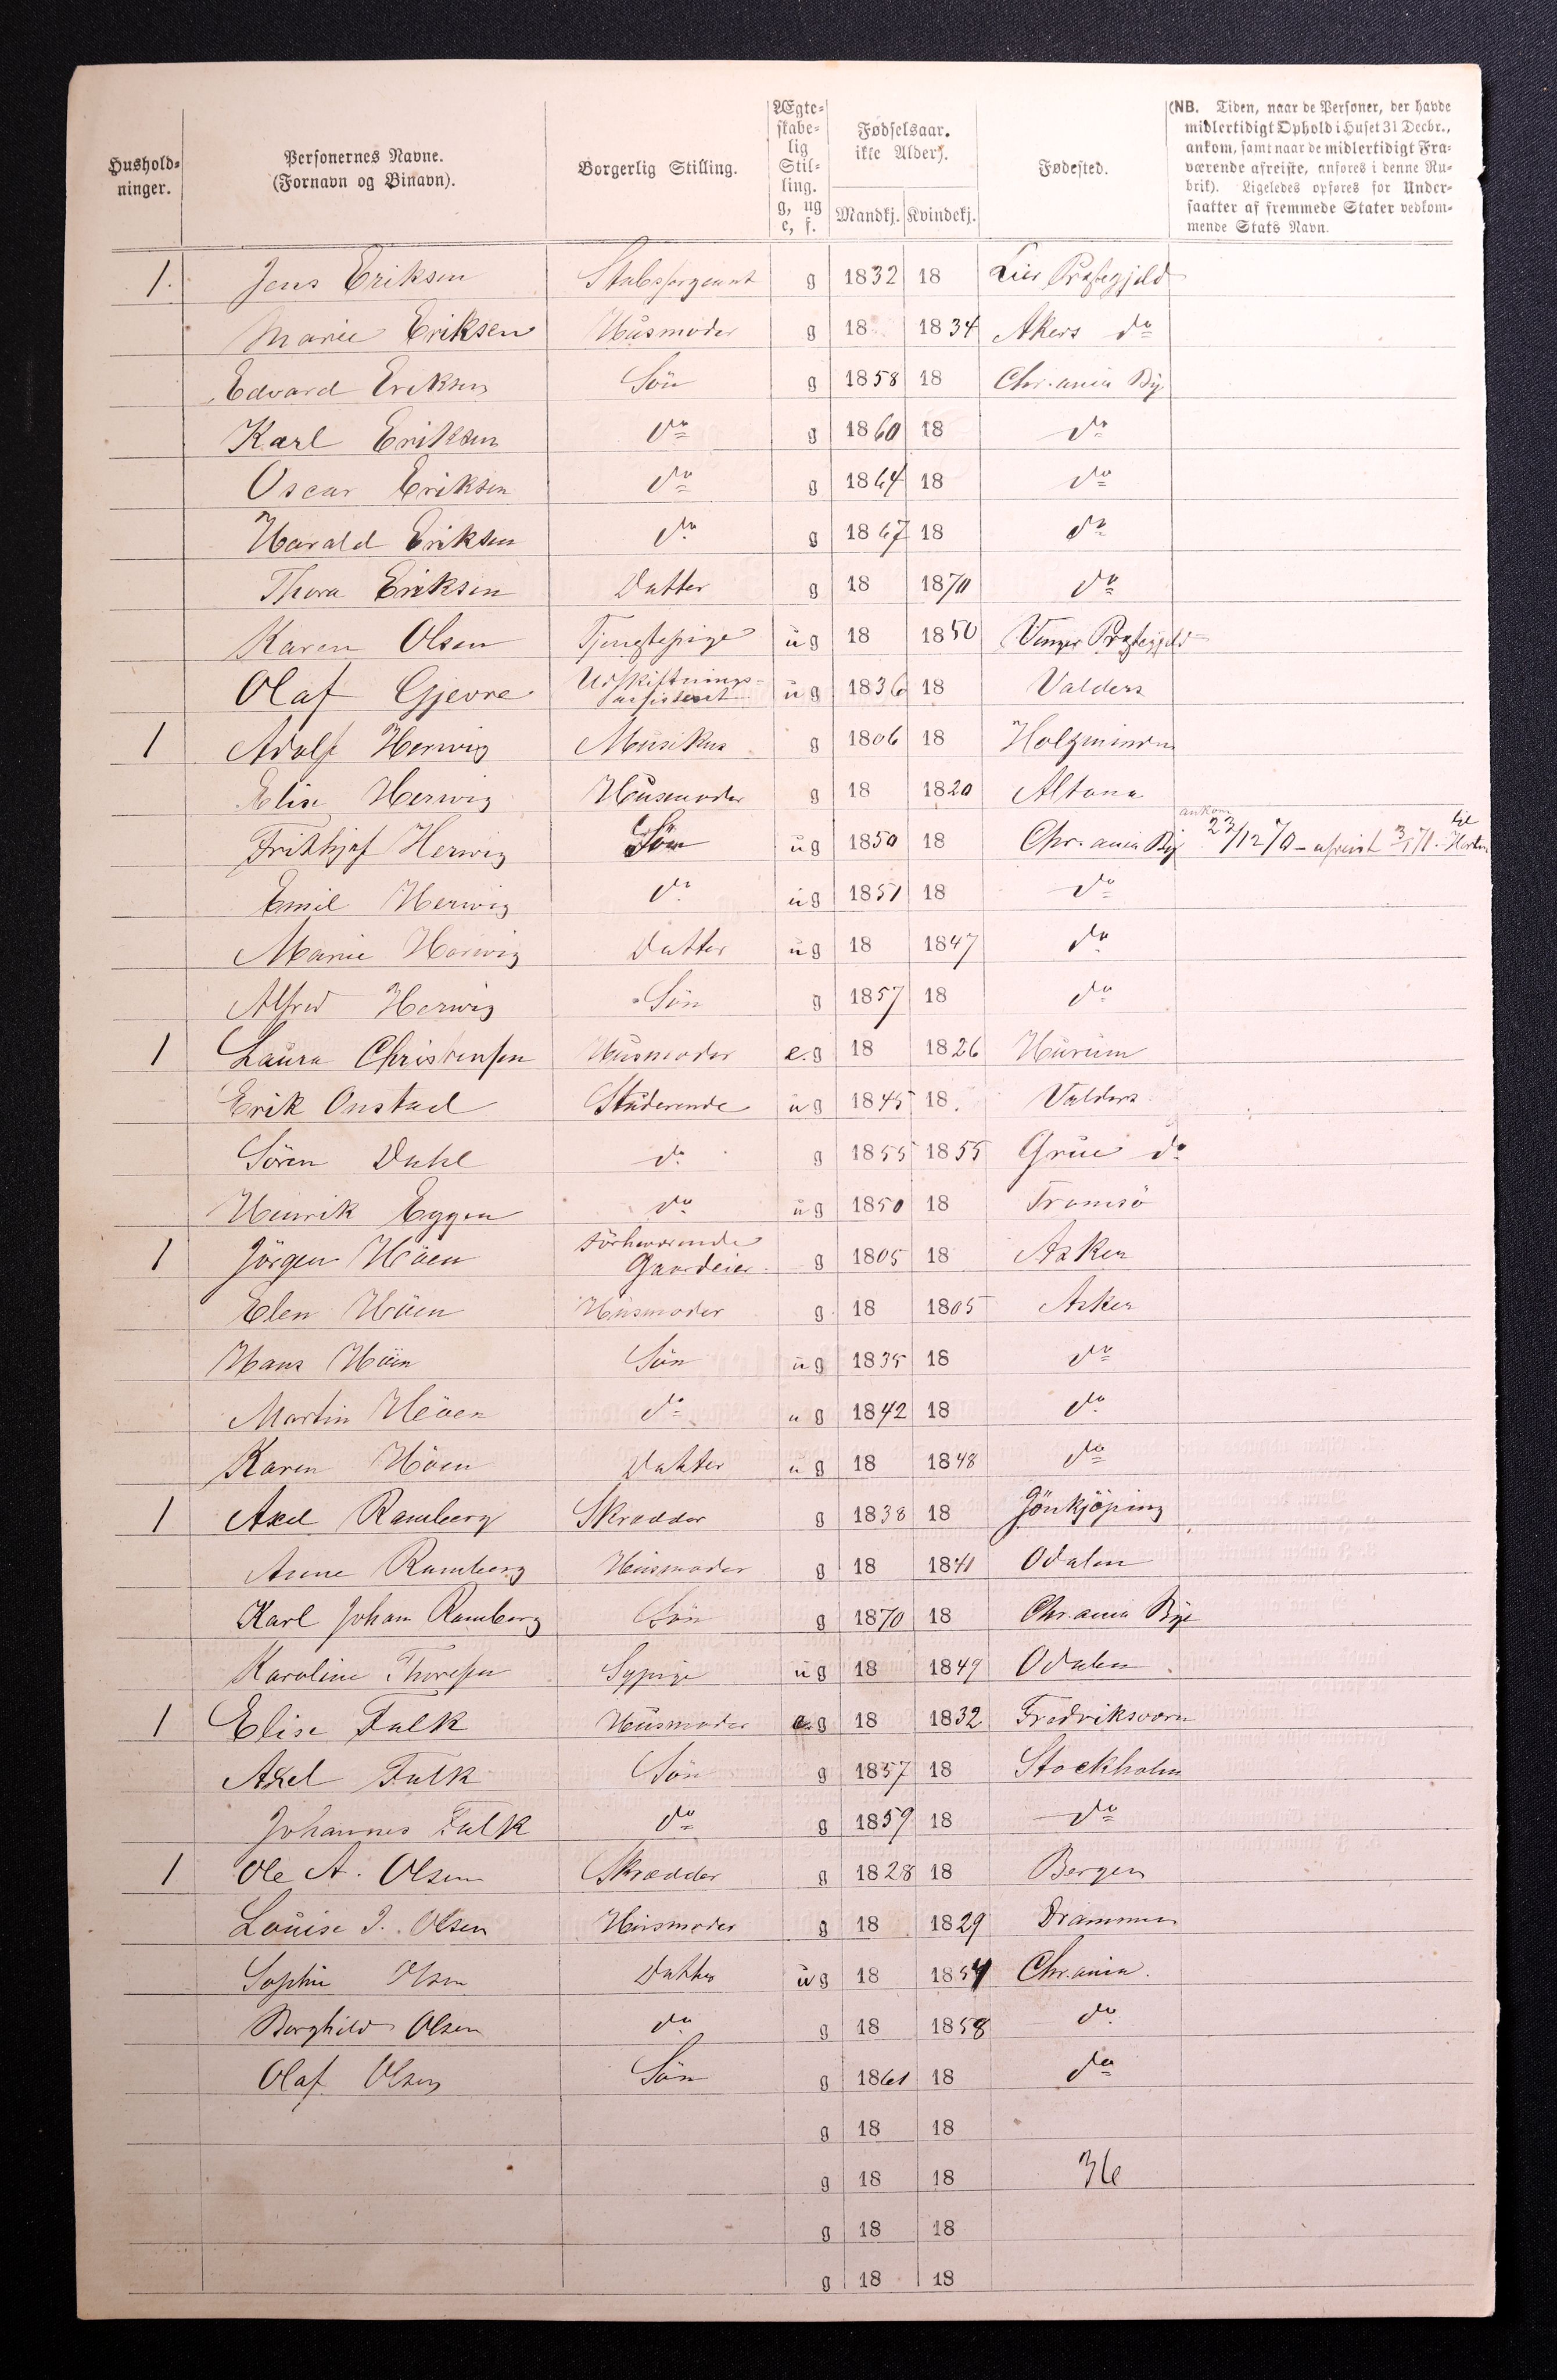 Hushold-
ninger.
Personernes Navne.
(Fornavn og Binavn).
Borgerlig Stilling.
Ægte-
skabe-
lig
Stil-
ling.
g, ug
e, f.
Fødselsaar.
ikke Alder).
Mandkj. Kvindekj.
Fødested.
(NB. Tiden, naar de Personer, der havde
midlertidigt Ophold i Huset 31 Decbr.,
ankom, samt naar de midlertidigt Fra-
værende afreiste, anføres i denne Ru-
brik). Ligeledes opføres for Under-
saatter af fremmede Stater vedkom-
mende Stats Navn.
1. Jens Eriksen Stabssergeant g 1832 18 Lier Præstegjeld
Marie Eriksen Husmoder g 18 1834 Akers do
Edvard Eriksen Søn g 1858 18 Chr.ania By
Karl Eriksen do g 1860 18 do
Oscar Eriksen do g 1864 18 do
Harald Eriksen do g 1867 18 do
Thora Eriksen Datter g 18 1870 do
Karen Olsen Tjenestepige ug 18 1850 Vinger Præstegjeld
Olaf Gjevre Udskiftnings- ug 1836 18 Valders
1 Adolf Herwig Musikus g 1806 18 Holzminden
Elise Herwig Husmoder g 18 1820 Altona
Frithjof Herwig Søn ug 1850 18 Chr.ania By ankom 23/12 70 - afreist 3/1 71 til Horten
Emil Herwig do ug 1851 18 do
Marie Herwig Datter ug 18 1847 do
Alfred Herwig Søn g 1857 18 do
1 Laura Christensen Husmoder e.g 18 1826 Hurum
Erik Onstad Studerende ug 1845 18 Valders
Sören Dahl do g 1855 1855 Grue do
Henrik Eggen do ug 1850 18 Tromsö
1 Jörgen Höen forhenværende Gaardeier g 1805 18 Asker
Elen Höen Husmoder g 18 1805 Asker
Hans Höen Søn ug 1835 18 do
Martin Höen do ug 1842 18 do
Karen Höen Datter ug 18 1848 do
1 Axel Ramberg Skrædder g 1838 18 Jönkjöping
Anne Ramberg Husmoder g 18 1841 Odalen
Karl Johan Ramberg Søn g 1870 18 Chr.ania Bye
Karoline Thoresen Sypige ug 18 1849 Odalen
1 Elise Falk Husmoder e.g 18 1832 Fredriksværn
Axel Falk Søn g 1857 18 Stockholm
Johannes Falk do g 1859 18 do
1 Ole A. Olsen Skrædder g 1828 18 Bergen
Louise J. Olsen Husmoder g 18 1829 Drammen
Sophie Olsen Datter ug 18 1854 Chr.ania.
Borghild Olsen do g 18 1858 do
Olaf Olsen Søn g 1861 18 do
g 18 18
g 18 18 36
g 18 18
g 18 18